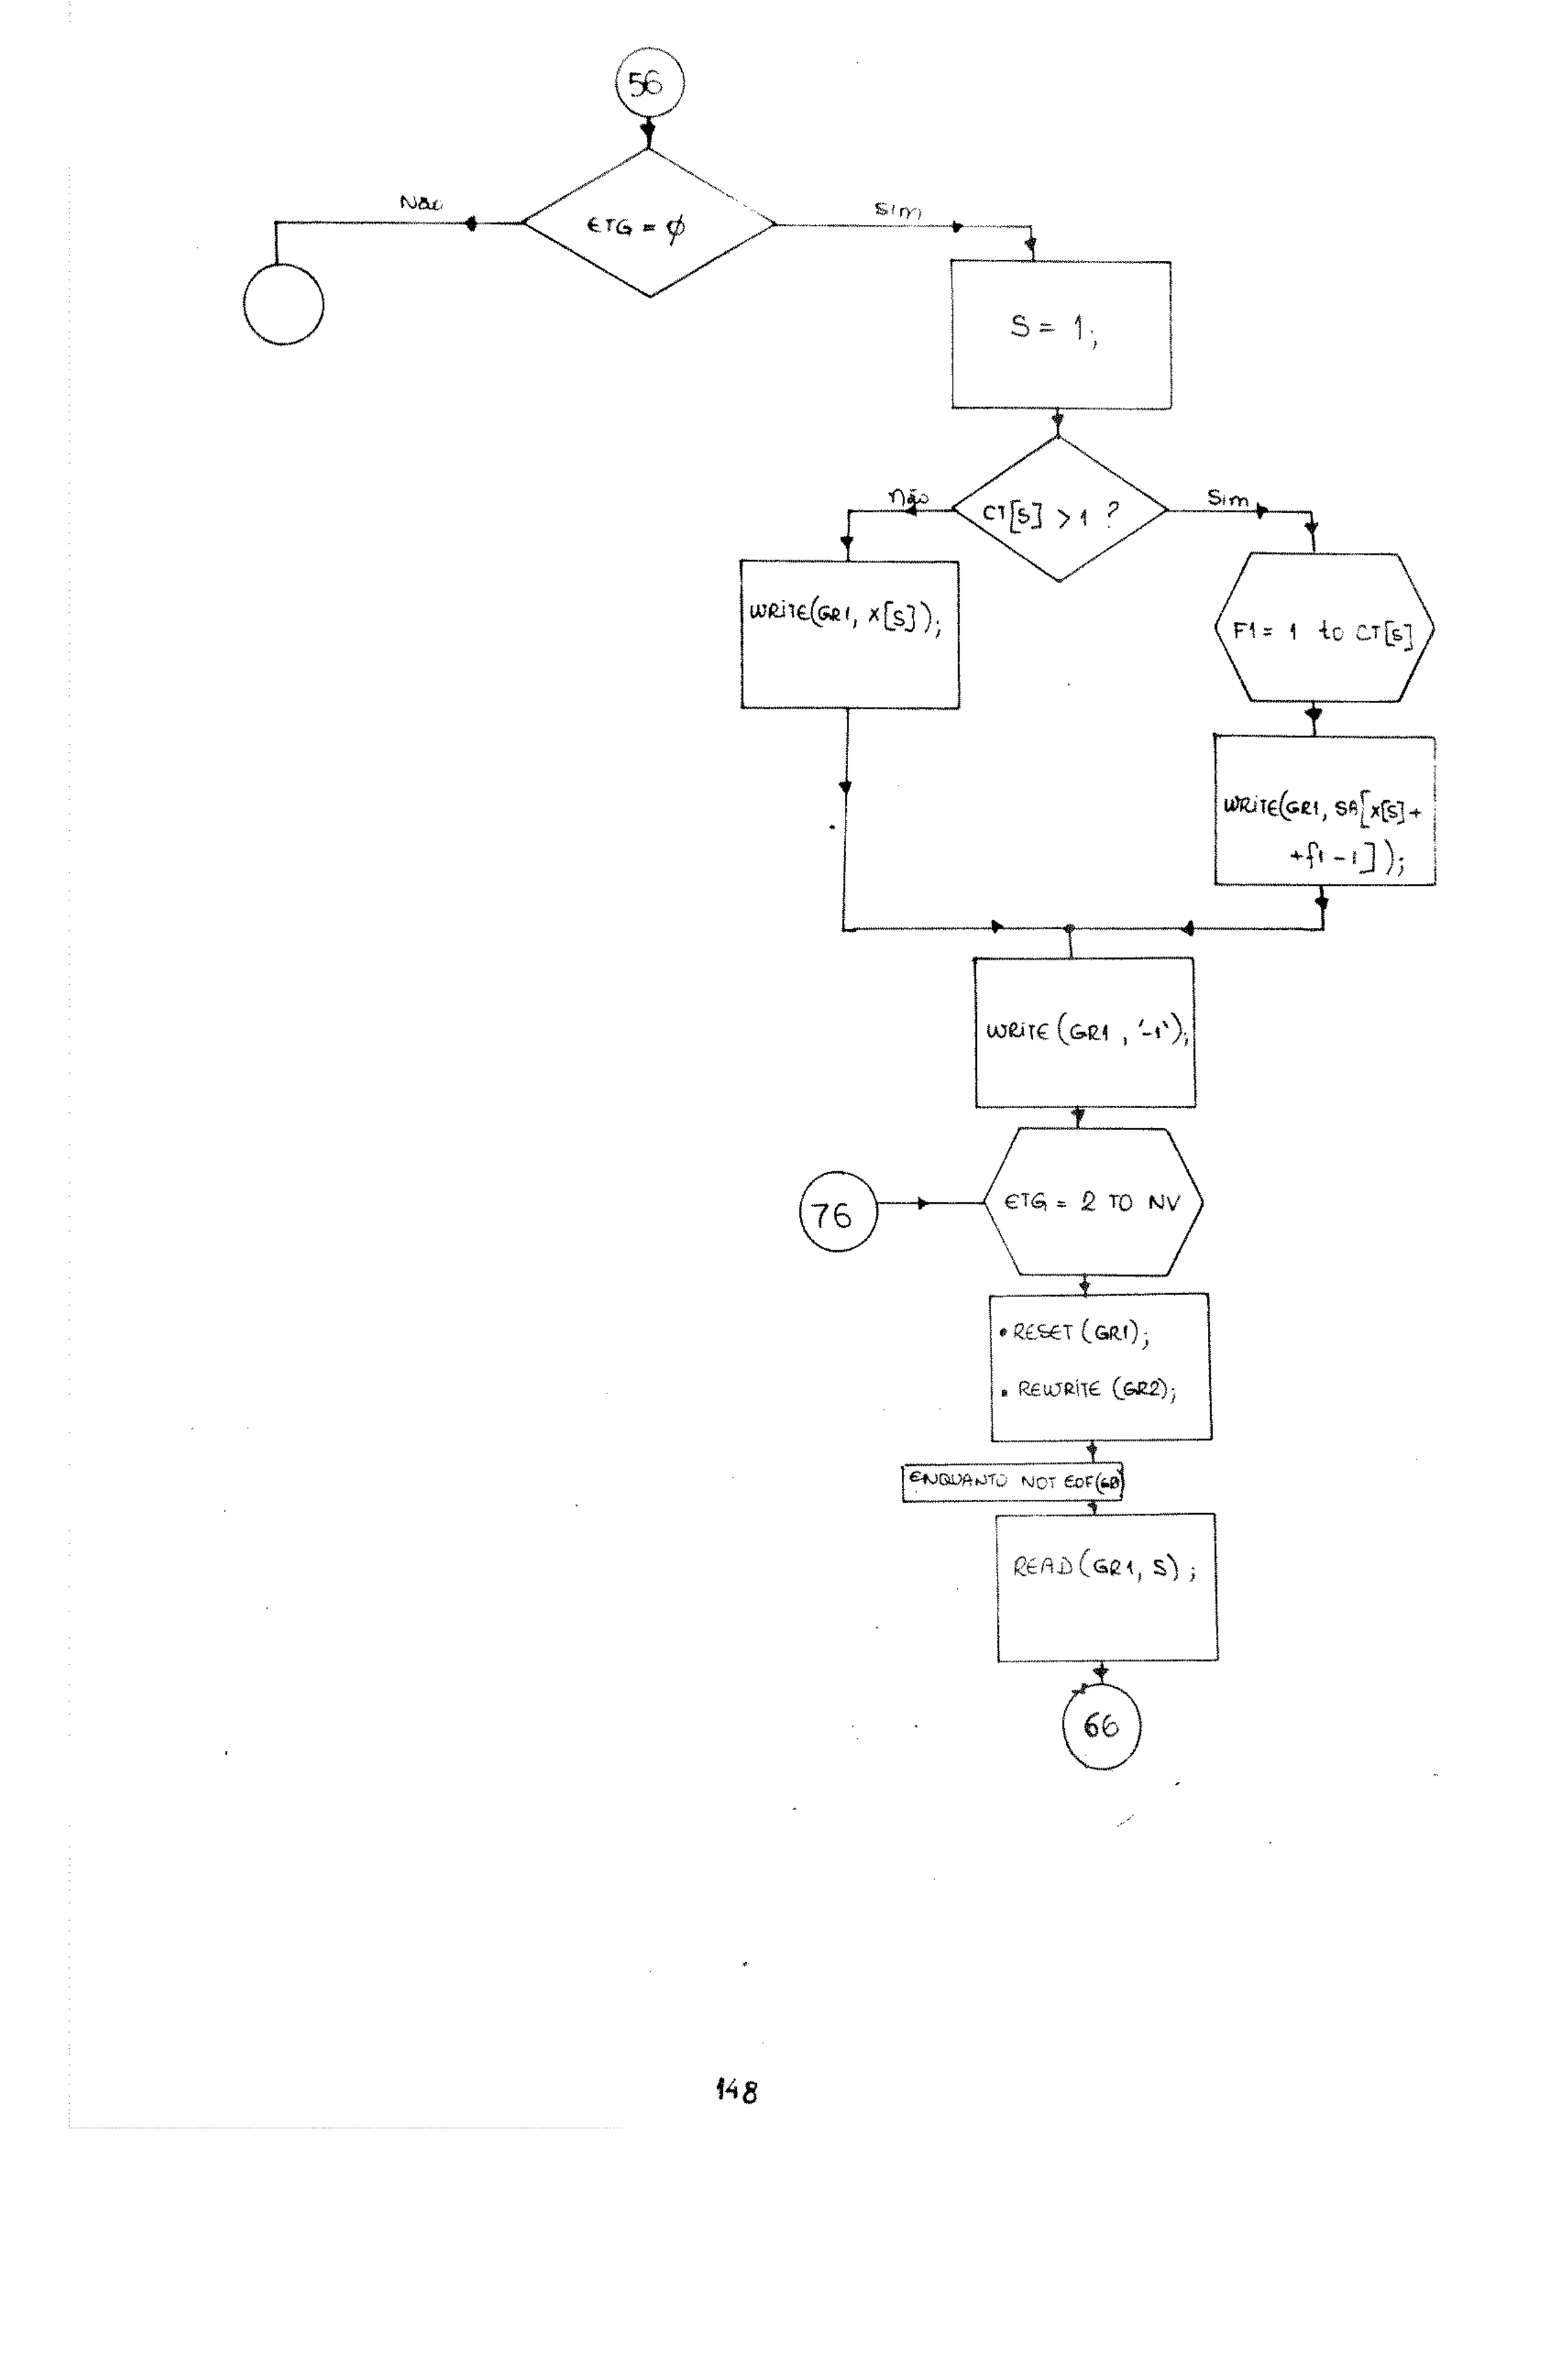 56
Não
ETG = ϕ
Sim
S = 1;
não
CT[S] > 1 ?
Sim
WRITE(GR1, X[S]);
F1 = 1 to CT[S]
WRITE(GR1, SA[X[S]+
+f1-1]);
WRITE(GR1, '-1');
76
ETG = 2 TO NV
• RESET(GR1);
• REWRITE(GR2);
ENQUANTO NOT
READ(GR1, S);
66
148